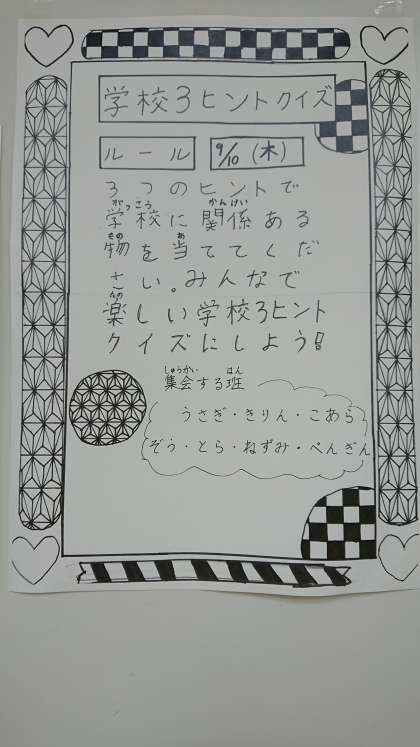 学校3ヒントクイズ
ルール 9/10(木)
3つのヒントで
学校に関係ある
物を当ててくだ
さい。みんなで
楽しい学校3ヒント
クイズにしよう!!
集会する班
うさぎ・きりん・こあら
ぞう・とら・ねずみ・ぺんぎん